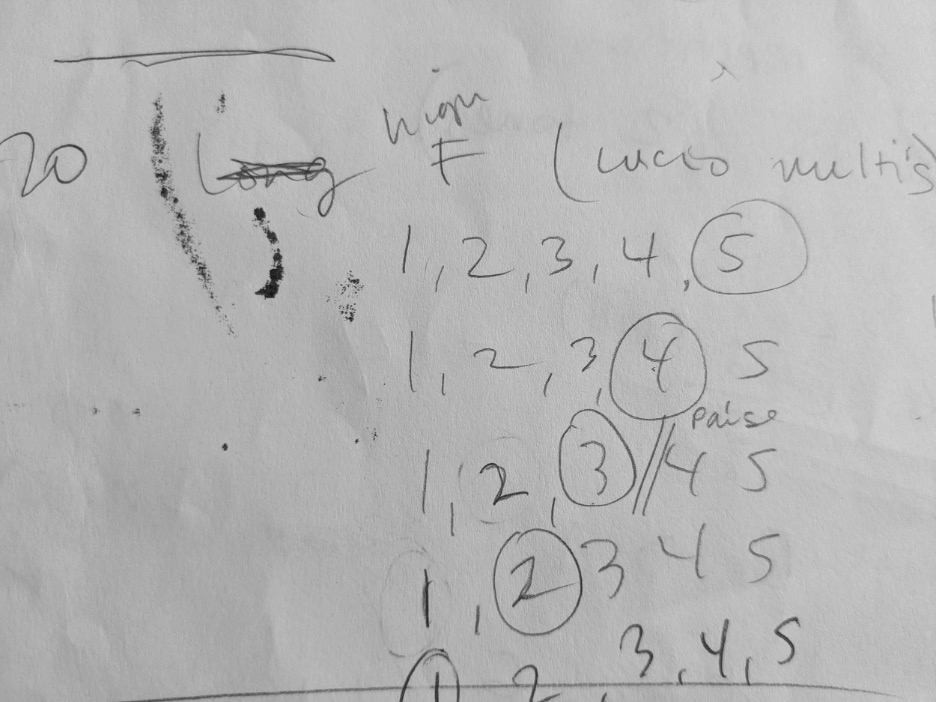 20 Long high F (micro multis)
1, 2, 3, 4, 5
1, 2, 3, 4 5
pause
1, 2, 3 // 4 5
1, 2 3 4 5
1 2, 3, 4, 5